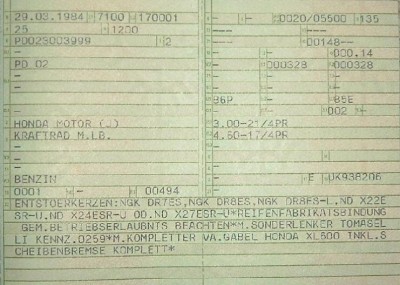 29.03.1984 7100 170001 0020/05500 135
25 1200 ---
PD023003999 2 - 00148--
- - 000.14
PD 02 000328 000328
- - -
- - -
86P 85E
- - 002 -
HONDA MOTOR (J) 3.00-21/4PR
KRAFTRAD M.LB. 4.60-17/4PR
- -
- -
BENZIN - E UK938206
0001 - 00494 -
ENTSTOERKERZEN:NGK DR7ES,NGK DR8ES,NGK DR8ES-L,ND X22E
SR-U,ND X24ESR-U OD.ND X27ESR-U*REIFENFABRIKATSBINDUNG
GEM.BETRIEBSERLAUBNTS BEACHTEN*M.SONDERLENKER TOMASEL
LI KENNZ.0259*M.KOMPLETTER VA.GABEL HONDA XL600 INKL.S
CHEIBENBREMSE KOMPLETT*